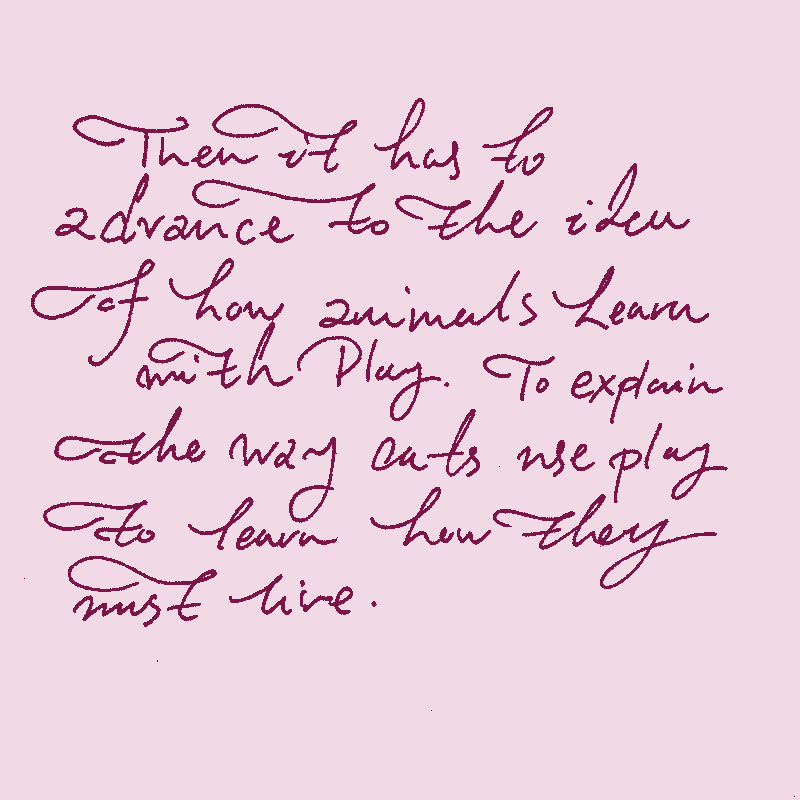 Then it has to
advance to the idea
of how animals learn
with Play. To explain
the way cats use play
to learn how they
must live.